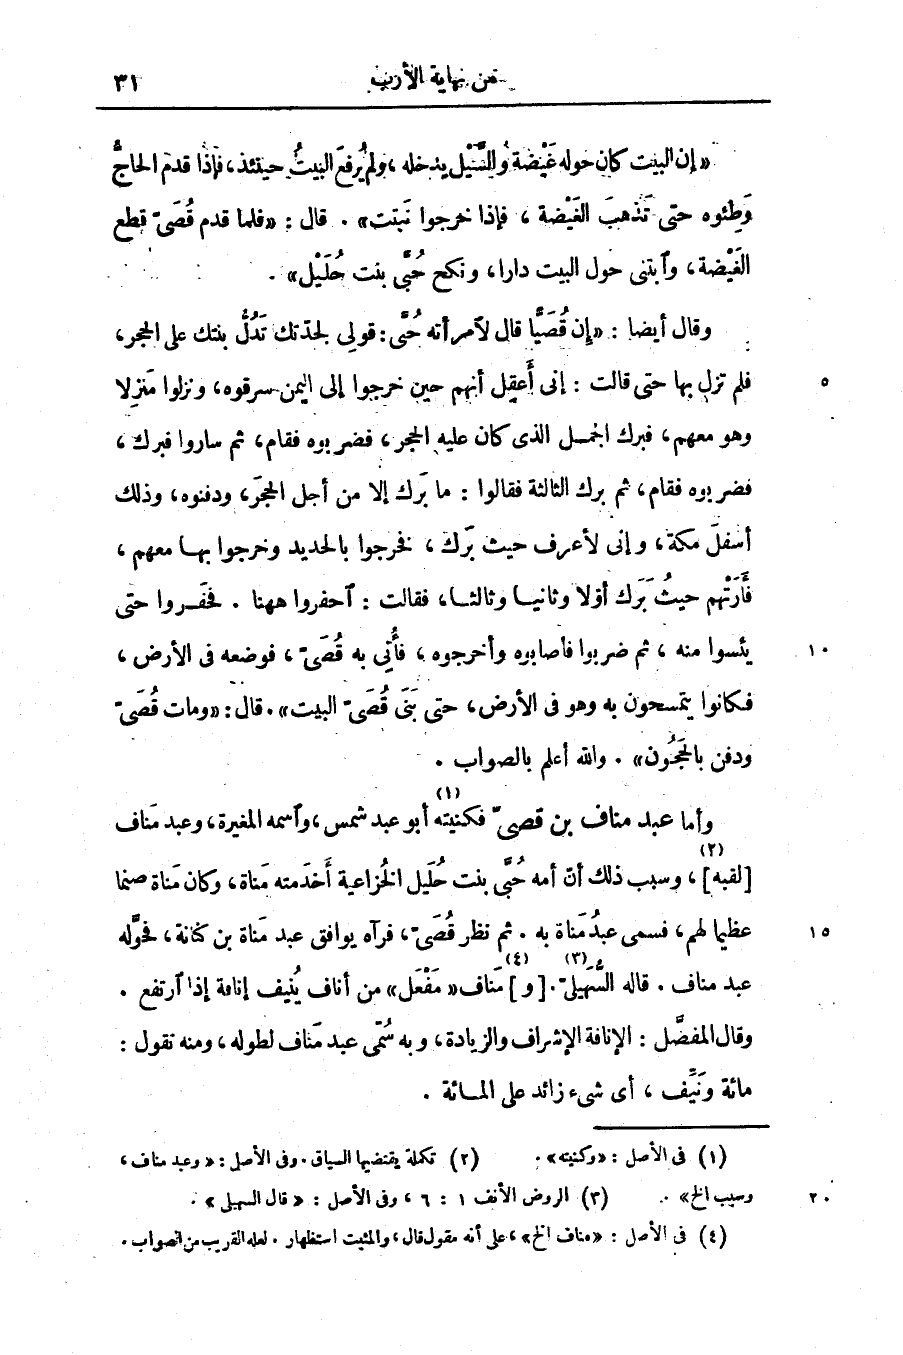 من نهاية الأرب ٣١
«إن البيت كان حوله غَيْضة والسَّيْل يدخله، ولم يُرفع البيتُ حينئذ، فإذا قدم الحاجُّ
وَطئوه حتى تَذهبَ الغَيْضة، فإذا خرجوا نَبتت». قال: «فلما قدم قُصَىّ قطع
الغَيْضة، وٱبتنى حول البيت دارا، ونكح حُبَّى بنت حُلَيْل».
وقال أيضا: «إن قُصَيًّا قال لٱمرأته حُبَّى: قولى لجدّتك تَدُلُّ بنتك على الحجر،
فلم تزل بها حتى قالت: إنى أَعقِل أنهم حين خرجوا إلى اليمن سرقوه، ونزلوا مَنزلا ٥
وهو معهم، فبرك الجمل الذى كان عليه الحجر، فضربوه فقام، ثم ساروا فبرك،
فضربوه فقام، ثم برك الثالثة فقالوا: ما بَرك إلا من أجل الحجَر، ودفنوه، وذلك
أسفلَ مكة، وإنى لأعرف حيث بَرَك، فخرجوا بالحديد وخرجوا بها معهم،
فَأَرَتْهم حيثُ بَرَك أوّلا وثانيا وثالثا، فقالت: ٱحفروا ههنا. فحَفروا حتى
يئسوا منه، ثم ضربوا فأصابوه وأخرجوه، فأُتى به قُصَىّ، فوضعه فى الأرض، ١٠
فكانوا يتمسحون به وهو فى الأرض، حتى بَنَى قُصَىّ البيت». قال: «ومات قُصَىّ
ودفن بالحَجُون». والله أعلم بالصواب.
وأما عبد مناف بن قصىّ فكنيته (١) أبو عبد شمس، وٱسمه المغيرة، وعبد مَناف
[لقبه] (٢)، وسبب ذلك أنّ أمه حُبَّى بنت حُلَيل الخُزاعية أَخدَمته مَناة، وكان مَناة صنما
عظيما لهم، فسمى عبدُ مَناة به. ثم نظر قُصَىّ، فرآه يوافق عبد مَناة بن كنانة، فحوَّله ١٥
عبد مناف. قاله السُّهَيلىّ (٣). [و] (٤) مَناف «مَفْعَل» من أناف يُنيف إنافة إذا ٱرتفع.
وقال المفضَّل: الإنافة الإشراف والزيادة، وبه سُمّى عبد مَناف لطوله، ومنه تقول:
مائة ونَيِّف، أى شىء زائد على المائة.
(١) فى الأصل: «وكنيته». (٢) تكملة يقتضيها السياق. وفى الأصل: «وعبد مناف،
وسبب الخ». (٣) الروض الأنف ١ : ٦، وفى الأصل: «قال السهيلى». ٢٠
(٤) فى الأصل: «مناف الخ»، على أنه مقول قال، والمثبت استظهار. لعله القريب من الصواب.